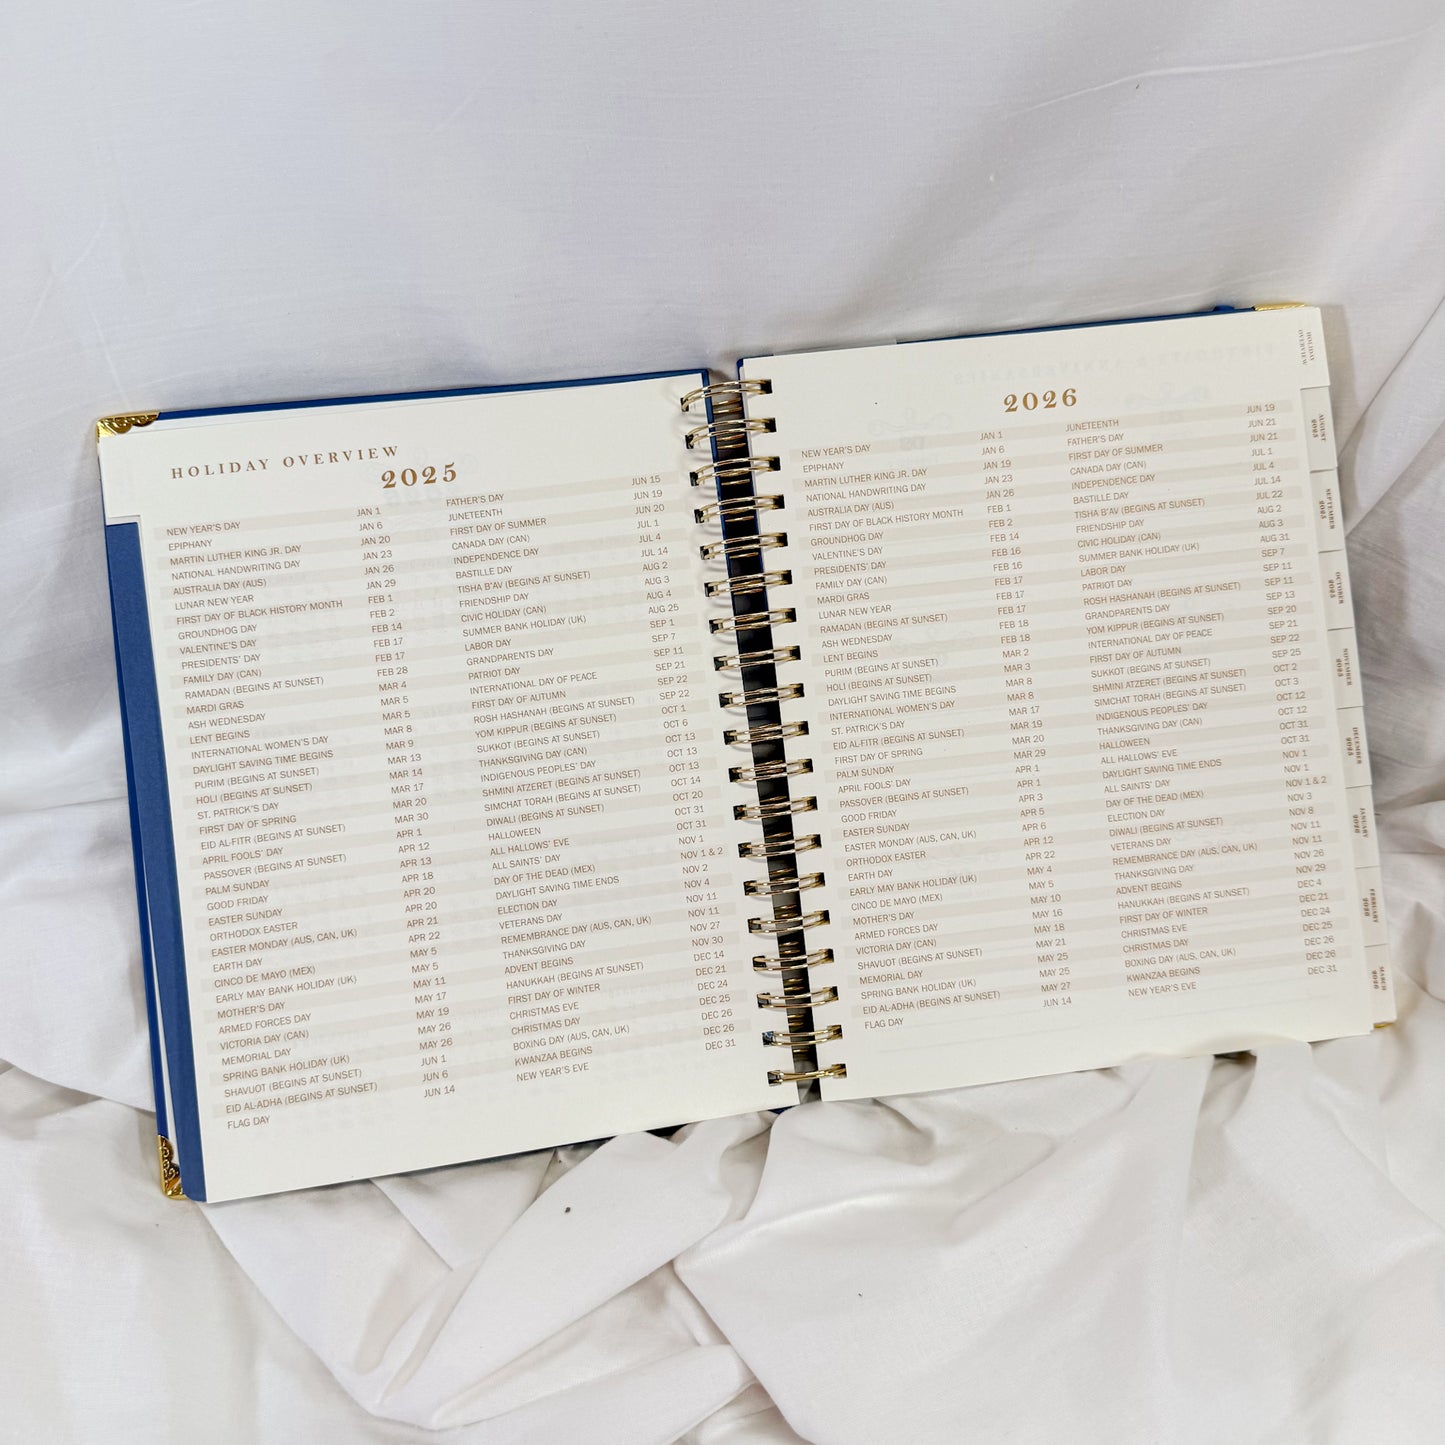 HOLIDAY OVERVIEW
2025
NEW YEAR'S DAY JAN 1
EPIPHANY JAN 6
MARTIN LUTHER KING JR. DAY JAN 20
NATIONAL HANDWRITING DAY JAN 23
AUSTRALIA DAY (AUS) JAN 26
LUNAR NEW YEAR JAN 29
FIRST DAY OF BLACK HISTORY MONTH FEB 1
GROUNDHOG DAY FEB 2
VALENTINE'S DAY FEB 14
PRESIDENTS' DAY FEB 17
FAMILY DAY (CAN) FEB 17
RAMADAN (BEGINS AT SUNSET) FEB 28
MARDI GRAS MAR 4
ASH WEDNESDAY MAR 5
LENT BEGINS MAR 5
INTERNATIONAL WOMEN'S DAY MAR 8
DAYLIGHT SAVING TIME BEGINS MAR 9
PURIM (BEGINS AT SUNSET) MAR 13
HOLI (BEGINS AT SUNSET) MAR 14
ST. PATRICK'S DAY MAR 17
FIRST DAY OF SPRING MAR 20
EID AL-FITR (BEGINS AT SUNSET) MAR 30
APRIL FOOLS' DAY APR 1
PASSOVER (BEGINS AT SUNSET) APR 12
PALM SUNDAY APR 13
GOOD FRIDAY APR 18
EASTER SUNDAY APR 20
ORTHODOX EASTER APR 20
EASTER MONDAY (AUS, CAN, UK) APR 21
EARTH DAY APR 22
CINCO DE MAYO (MEX) MAY 5
EARLY MAY BANK HOLIDAY (UK) MAY 5
MOTHER'S DAY MAY 11
ARMED FORCES DAY MAY 17
VICTORIA DAY (CAN) MAY 19
MEMORIAL DAY MAY 26
SPRING BANK HOLIDAY (UK) MAY 26
SHAVUOT (BEGINS AT SUNSET) JUN 1
EID AL-ADHA (BEGINS AT SUNSET) JUN 6
FLAG DAY JUN 14
FATHER'S DAY JUN 15
JUNETEENTH JUN 19
FIRST DAY OF SUMMER JUN 20
CANADA DAY (CAN) JUL 1
INDEPENDENCE DAY JUL 4
BASTILLE DAY JUL 14
TISHA B'AV (BEGINS AT SUNSET) AUG 2
FRIENDSHIP DAY AUG 3
CIVIC HOLIDAY (CAN) AUG 4
SUMMER BANK HOLIDAY (UK) AUG 25
LABOR DAY SEP 1
GRANDPARENTS DAY SEP 7
PATRIOT DAY SEP 11
INTERNATIONAL DAY OF PEACE SEP 21
FIRST DAY OF AUTUMN SEP 22
ROSH HASHANAH (BEGINS AT SUNSET) SEP 22
YOM KIPPUR (BEGINS AT SUNSET) OCT 1
SUKKOT (BEGINS AT SUNSET) OCT 6
THANKSGIVING DAY (CAN) OCT 13
INDIGENOUS PEOPLES' DAY OCT 13
SHMINI ATZERET (BEGINS AT SUNSET) OCT 13
SIMCHAT TORAH (BEGINS AT SUNSET) OCT 14
DIWALI (BEGINS AT SUNSET) OCT 20
HALLOWEEN OCT 31
ALL HALLOWS' EVE OCT 31
ALL SAINTS' DAY NOV 1
DAY OF THE DEAD (MEX) NOV 1 & 2
DAYLIGHT SAVING TIME ENDS NOV 2
ELECTION DAY NOV 4
VETERANS DAY NOV 11
REMEMBRANCE DAY (AUS, CAN, UK) NOV 11
THANKSGIVING DAY NOV 27
ADVENT BEGINS NOV 30
HANUKKAH (BEGINS AT SUNSET) DEC 14
FIRST DAY OF WINTER DEC 21
CHRISTMAS EVE DEC 24
CHRISTMAS DAY DEC 25
BOXING DAY (AUS, CAN, UK) DEC 26
KWANZAA BEGINS DEC 26
NEW YEAR'S EVE DEC 31
2026
NEW YEAR'S DAY JAN 1
EPIPHANY JAN 6
MARTIN LUTHER KING JR. DAY JAN 19
NATIONAL HANDWRITING DAY JAN 23
AUSTRALIA DAY (AUS) JAN 26
FIRST DAY OF BLACK HISTORY MONTH FEB 1
GROUNDHOG DAY FEB 2
VALENTINE'S DAY FEB 14
PRESIDENTS' DAY FEB 16
FAMILY DAY (CAN) FEB 16
MARDI GRAS FEB 17
LUNAR NEW YEAR FEB 17
RAMADAN (BEGINS AT SUNSET) FEB 17
ASH WEDNESDAY FEB 18
LENT BEGINS FEB 18
PURIM (BEGINS AT SUNSET) MAR 2
HOLI (BEGINS AT SUNSET) MAR 3
DAYLIGHT SAVING TIME BEGINS MAR 8
INTERNATIONAL WOMEN'S DAY MAR 8
ST. PATRICK'S DAY MAR 17
EID AL-FITR (BEGINS AT SUNSET) MAR 19
FIRST DAY OF SPRING MAR 20
PALM SUNDAY MAR 29
APRIL FOOL'S DAY APR 1
PASSOVER (BEGINS AT SUNSET) APR 1
GOOD FRIDAY APR 3
EASTER SUNDAY APR 5
EASTER MONDAY (AUS, CAN, UK) APR 6
ORTHODOX EASTER APR 12
EARTH DAY APR 22
EARLY MAY BANK HOLIDAY (UK) MAY 4
CINCO DE MAYO (MEX) MAY 5
MOTHER'S DAY MAY 10
ARMED FORCES DAY MAY 16
VICTORIA DAY (CAN) MAY 18
SHAVUOT (BEGINS AT SUNSET) MAY 21
MEMORIAL DAY MAY 25
SPRING BANK HOLIDAY (UK) MAY 25
EID AL-ADHA (BEGINS AT SUNSET) MAY 27
FLAG DAY JUN 14
JUNETEENTH JUN 19
FATHER'S DAY JUN 21
FIRST DAY OF SUMMER JUN 21
CANADA DAY (CAN) JUL 1
INDEPENDENCE DAY JUL 4
BASTILLE DAY JUL 14
TISHA B'AV (BEGINS AT SUNSET) JUL 22
FRIENDSHIP DAY AUG 2
CIVIC HOLIDAY (CAN) AUG 3
SUMMER BANK HOLIDAY (UK) AUG 31
LABOR DAY SEP 7
PATRIOT DAY SEP 11
ROSH HASHANAH (BEGINS AT SUNSET) SEP 11
GRANDPARENTS DAY SEP 13
YOM KIPPUR (BEGINS AT SUNSET) SEP 20
INTERNATIONAL DAY OF PEACE SEP 21
FIRST DAY OF AUTUMN SEP 22
SUKKOT (BEGINS AT SUNSET) SEP 25
SHMINI ATZERET (BEGINS AT SUNSET) OCT 2
SIMCHAT TORAH (BEGINS AT SUNSET) OCT 3
INDIGENOUS PEOPLES' DAY OCT 12
THANKSGIVING DAY (CAN) OCT 12
HALLOWEEN OCT 31
ALL HALLOWS' EVE OCT 31
DAYLIGHT SAVING TIME ENDS NOV 1
ALL SAINTS' DAY NOV 1
DAY OF THE DEAD (MEX) NOV 1 & 2
ELECTION DAY NOV 3
DIWALI (BEGINS AT SUNSET) NOV 8
VETERANS DAY NOV 11
REMEMBRANCE DAY (AUS, CAN, UK) NOV 11
THANKSGIVING DAY NOV 26
ADVENT BEGINS NOV 29
HANUKKAH (BEGINS AT SUNSET) DEC 4
FIRST DAY OF WINTER DEC 21
CHRISTMAS EVE DEC 24
CHRISTMAS DAY DEC 25
BOXING DAY (AUS, CAN, UK) DEC 26
KWANZAA BEGINS DEC 26
NEW YEAR'S EVE DEC 31
HOLIDAY
OVERVIEW
AUGUST
2025
SEPTEMBER
2025
OCTOBER
2025
NOVEMBER
2025
DECEMBER
2025
JANUARY
2026
FEBRUARY
2026
MARCH
2026